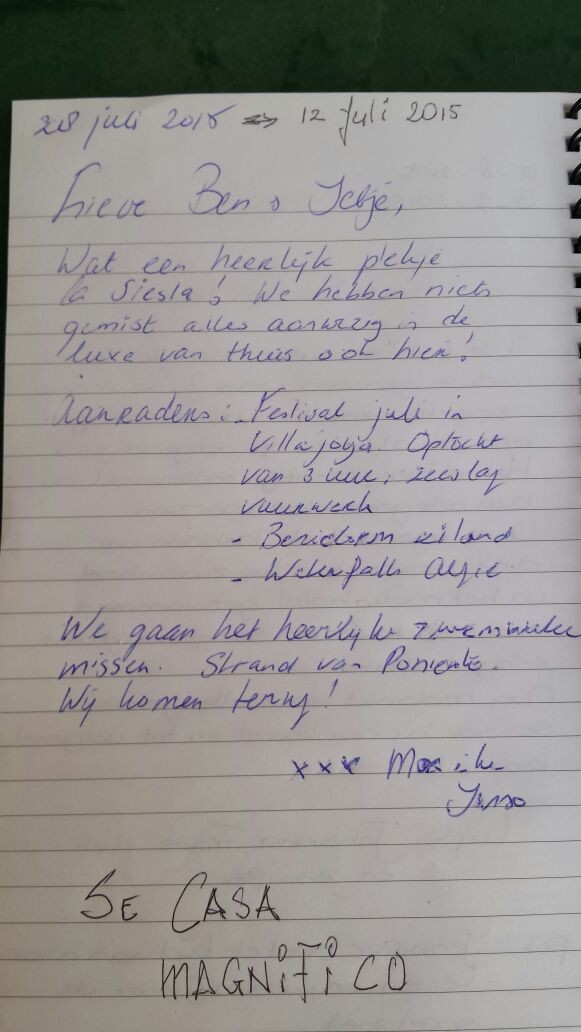 28 juli 2015 => 12 Juli 2015
Lieve Ben & Jetje,
Wat een heerlijk plekje
la Siesta! We hebben niets
gemist alles aanwezig is de
luxe van thuis ook hier!
Aanraders: - Festival juli in
Villajoyja. Optocht
van 3 uur, zeeslag
vuurwerk
- Benidorm eiland
- Waterfalls
We gaan het heerlijke
missen. Strand van Poniente.
Wij komen terug!
xxx
SE CASA
MAGNIFICO